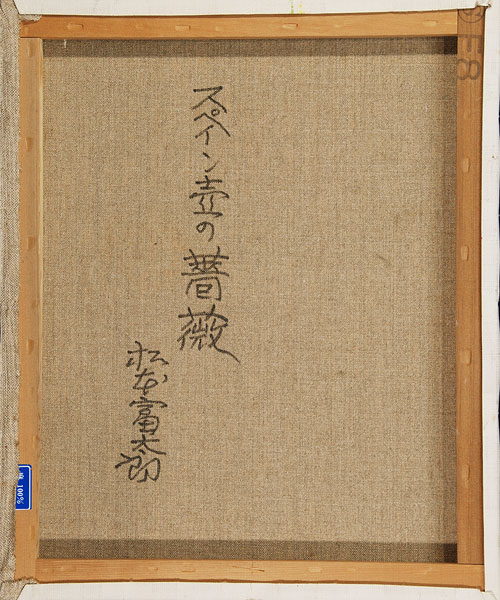 スペイン壺の薔薇
松本富太郎
F8
麻 100%